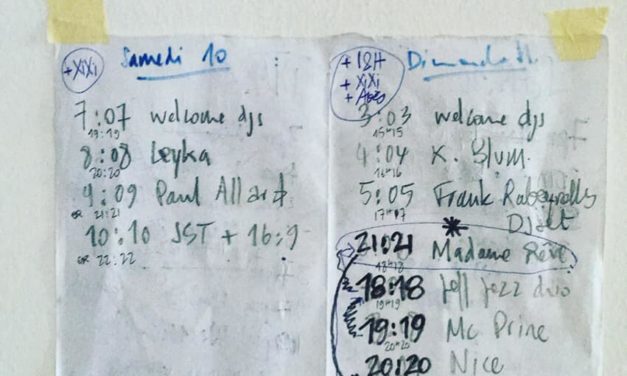 + XiXi
Samedi 10
7:07 welcome djs
19:19
8:08 Leyka
20:20
9:09 Paul Allard
or 21:21
10:10 JST + 16:9
or 22:22
+ 12H
+ XiXi
Dimanche 11
3:03 welcome djs
15H15
4:04 K. Blum.
16H16
5:05 Frank
17H17
DJset
21:21 Madame Rêve
18H18
18:18 Jeff Jezz duo
19H19
19:19 Mc Prine
20H20
20:20 Nice